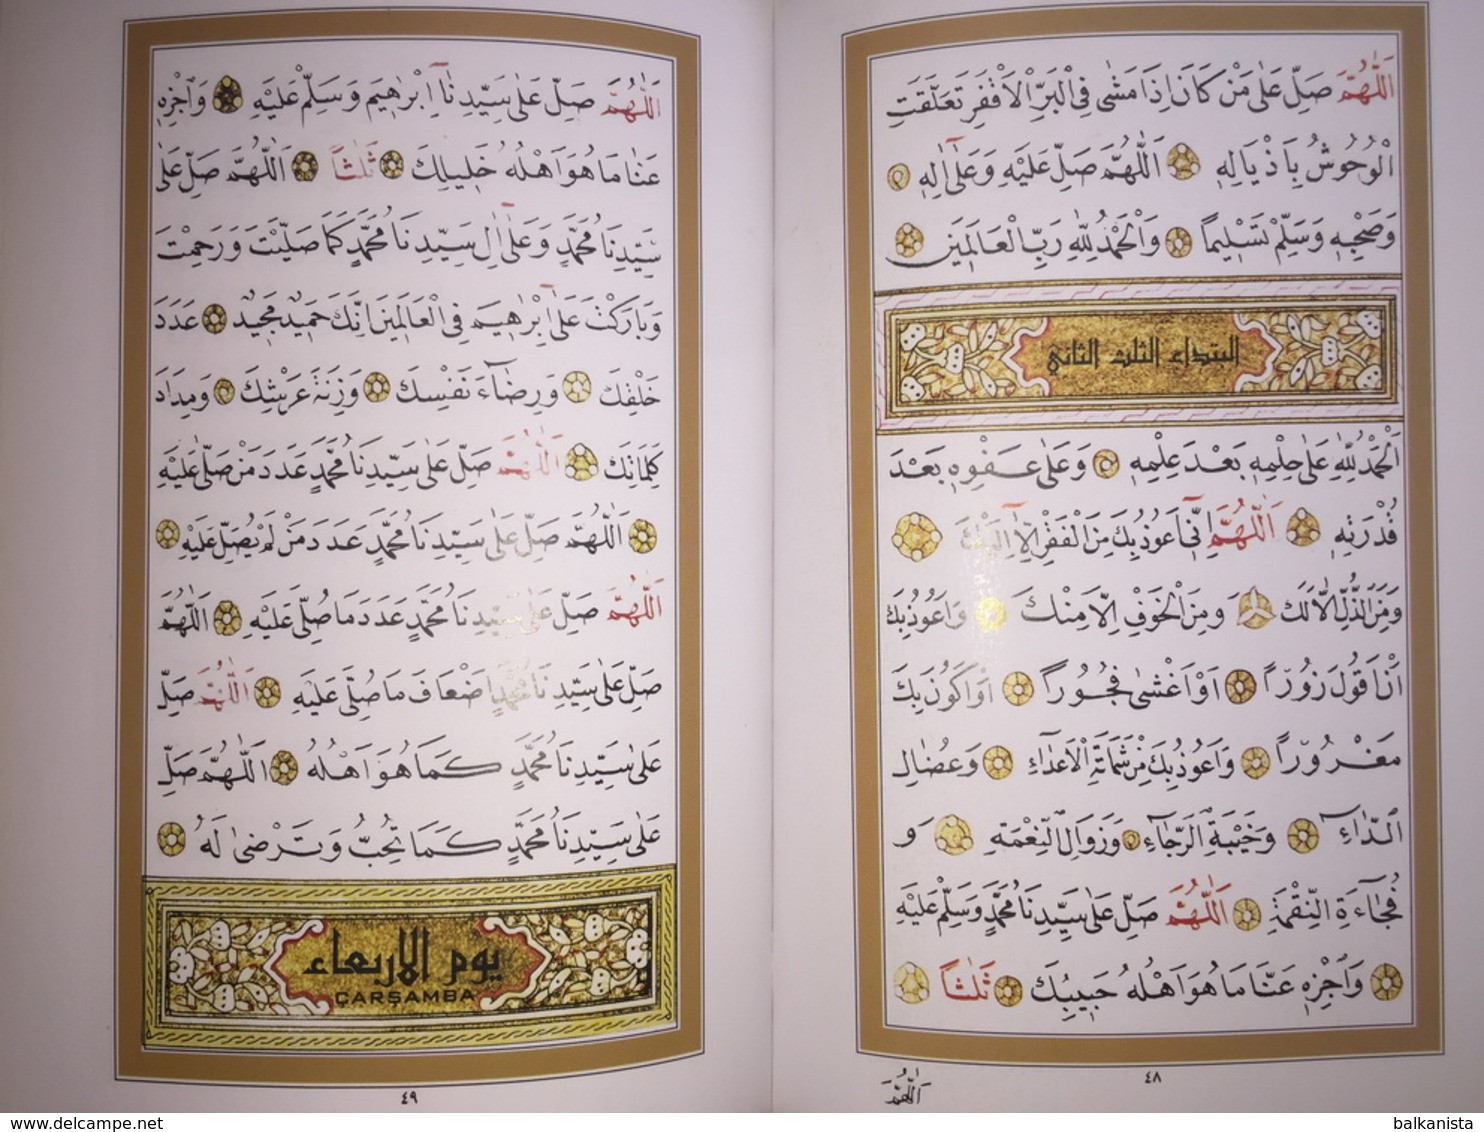 اَللّٰهُمَّ صَلِّ عَلٰى مَنْ كَانَ اِذَا مَشٰى فِى الْبَرِّ الْاَقْفَرِ تَعَلَّقَتِ
الْوُحُوشُ بِاَذْيَالِهِ اَللّٰهُمَّ صَلِّ عَلَيْهِ وَعَلٰى اٰلِهِ
وَصَحْبِهِ وَسَلِّمْ تَسْلِيمًا وَالْحَمْدُ لِلّٰهِ رَبِّ الْعَالَمِينَ
ابتداء الثلث الثاني
اَلْحَمْدُ لِلّٰهِ عَلٰى حِلْمِهِ بَعْدَ عِلْمِهِ وَعَلٰى عَفْوِهِ بَعْدَ
قُدْرَتِهِ اَللّٰهُمَّ اِنِّى اَعُوذُ بِكَ مِنَ الْفَقْرِ اِلَّا اِلَيْكَ
وَمِنَ الذُّلِّ اِلَّا لَكَ وَمِنَ الْخَوْفِ اِلَّا مِنْكَ وَاَعُوذُ بِكَ
اَنْ اَقُولَ زُورًا اَوْ اَغْشٰى فُجُورًا اَوْ اَكُونَ بِكَ
مَغْرُورًا وَاَعُوذُ بِكَ مِنْ شَمَاتَةِ الْاَعْدَاءِ وَعُضَالِ
الدَّاءِ وَخَيْبَةِ الرَّجَاءِ وَزَوَالِ النِّعْمَةِ وَ
فُجَاءَةِ النِّقْمَةِ اَللّٰهُمَّ صَلِّ عَلٰى سَيِّدِنَا مُحَمَّدٍ وَسَلِّمْ عَلَيْهِ
وَاجْزِهِ عَنَّا مَا هُوَ اَهْلُهُ حَبِيبِكَ ثَلٰثًا
٤٨
اَللّٰهُمَّ
اَللّٰهُمَّ صَلِّ عَلٰى سَيِّدِنَا اِبْرٰهِيمَ وَسَلِّمْ عَلَيْهِ وَاجْزِهِ
عَنَّا مَا هُوَ اَهْلُهُ خَلِيلِكَ ثَلٰثًا اَللّٰهُمَّ صَلِّ عَلٰى
سَيِّدِنَا مُحَمَّدٍ وَعَلٰى اٰلِ سَيِّدِنَا مُحَمَّدٍ كَمَا صَلَّيْتَ وَرَحِمْتَ
وَبَارَكْتَ عَلٰى اِبْرٰهِيمَ فِى الْعَالَمِينَ اِنَّكَ حَمِيدٌ مَجِيدٌ عَدَدَ
خَلْقِكَ وَرِضَاءَ نَفْسِكَ وَزِنَةَ عَرْشِكَ وَمِدَادَ
كَلِمَاتِكَ اَللّٰهُمَّ صَلِّ عَلٰى سَيِّدِنَا مُحَمَّدٍ عَدَدَ مَنْ صَلّٰى عَلَيْهِ
اَللّٰهُمَّ صَلِّ عَلٰى سَيِّدِنَا مُحَمَّدٍ عَدَدَ مَنْ لَمْ يُصَلِّ عَلَيْهِ
اَللّٰهُمَّ صَلِّ عَلٰى سَيِّدِنَا مُحَمَّدٍ عَدَدَ مَا صُلِّىَ عَلَيْهِ اَللّٰهُمَّ
صَلِّ عَلٰى سَيِّدِنَا مُحَمَّدٍ اَضْعَافَ مَا صُلِّىَ عَلَيْهِ اَللّٰهُمَّ صَلِّ
عَلٰى سَيِّدِنَا مُحَمَّدٍ كَمَا هُوَ اَهْلُهُ اَللّٰهُمَّ صَلِّ
عَلٰى سَيِّدِنَا مُحَمَّدٍ كَمَا تُحِبُّ وَتَرْضٰى لَهُ
يوم الاربعاء
ÇARŞAMBA
٤٩
my own screenshot
balkanista